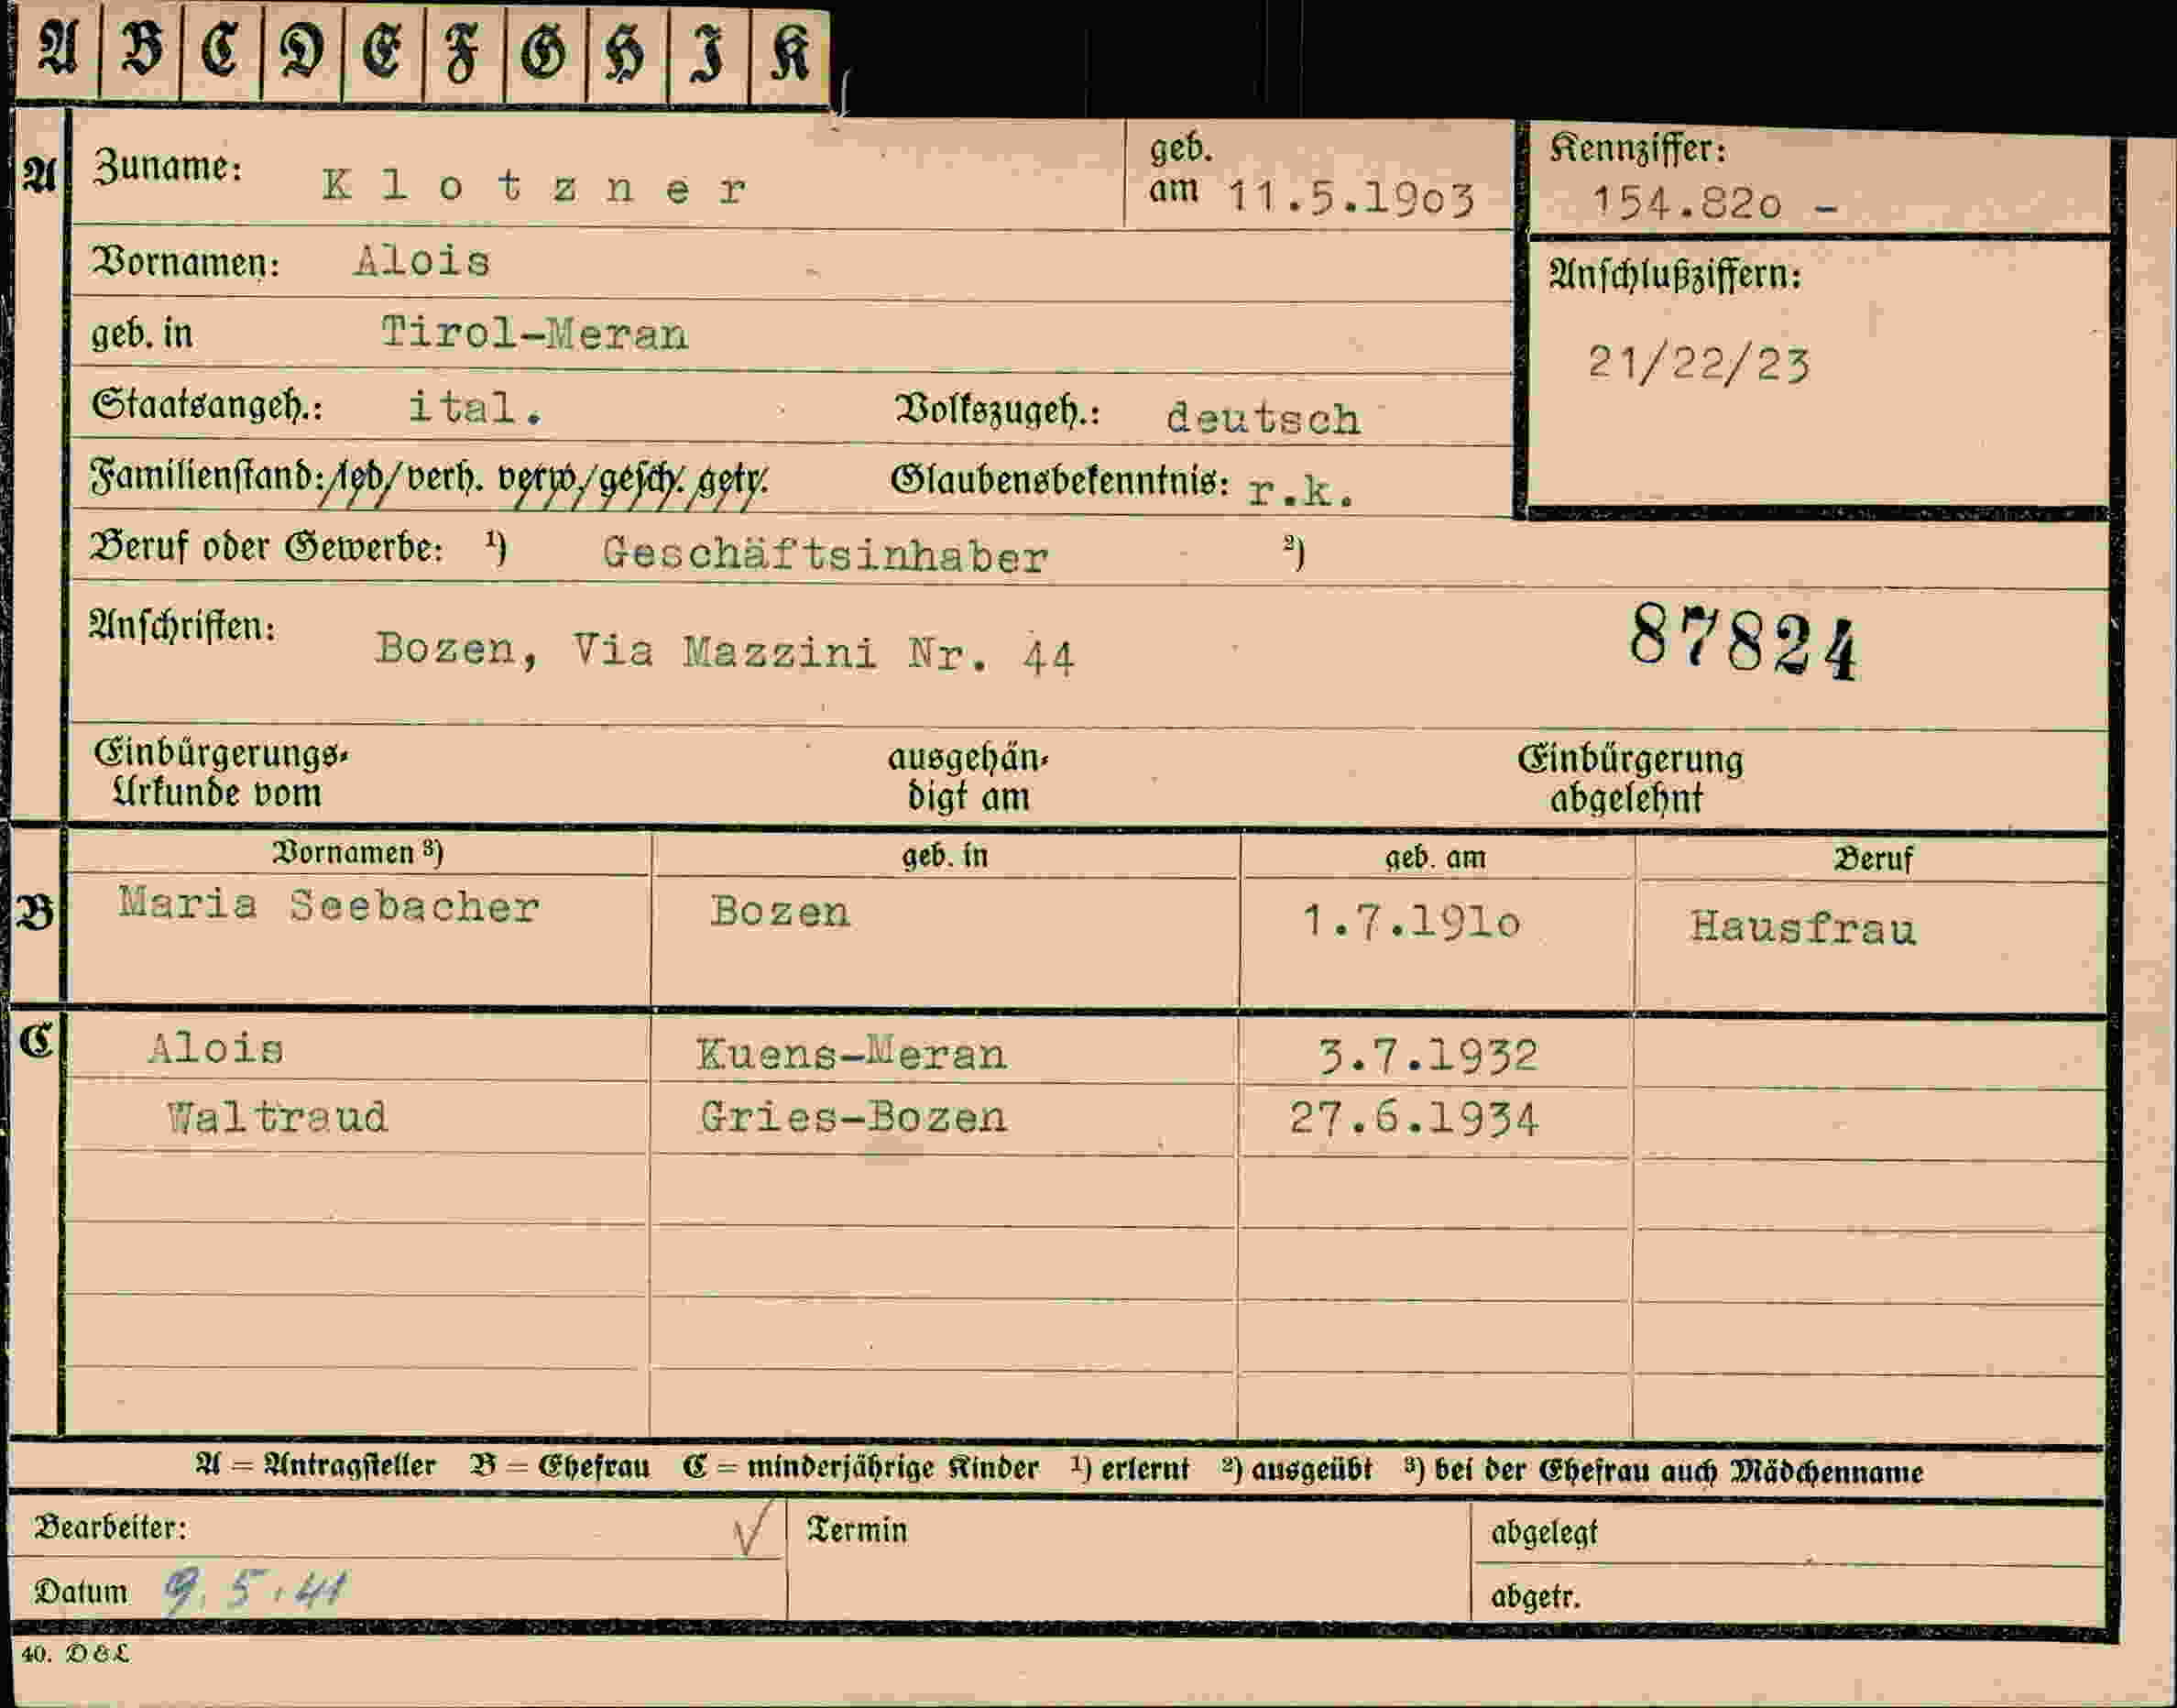 A B C D E F G H I K
A Zuname: Klotzner geb. am 11.5.19o3 Kennziffer: 154.82o -
Vornamen: Alois Anschlußziffern:
geb. in Tirol-Meran 21/22/23
Staatsangeh.: ital. Volkszugeh.: deutsch
Familienstand: led/verh. verw./gesch. getr. Glaubensbekenntnis: r.k.
Beruf oder Gewerbe: ¹) Geschäftsinhaber ²)
Anschriften: Bozen, Via Mazzini Nr. 44 87824
Einbürgerungs- ausgehän- Einbürgerung
Urkunde vom digt am abgelehnt
Vornamen ³) geb. in geb. am Beruf
B Maria Seebacher Bozen 1.7.191o Hausfrau
C Alois Kuens-Meran 3.7.1932
Waltraud Gries-Bozen 27.6.1934
A = Antragsteller B = Ehefrau C = minderjährige Kinder ¹) erlernt ²) ausgeübt ³) bei der Ehefrau auch Mädchenname
Bearbeiter: Termin abgelegt
Datum 9.5.41 abgetr.
40. D & L